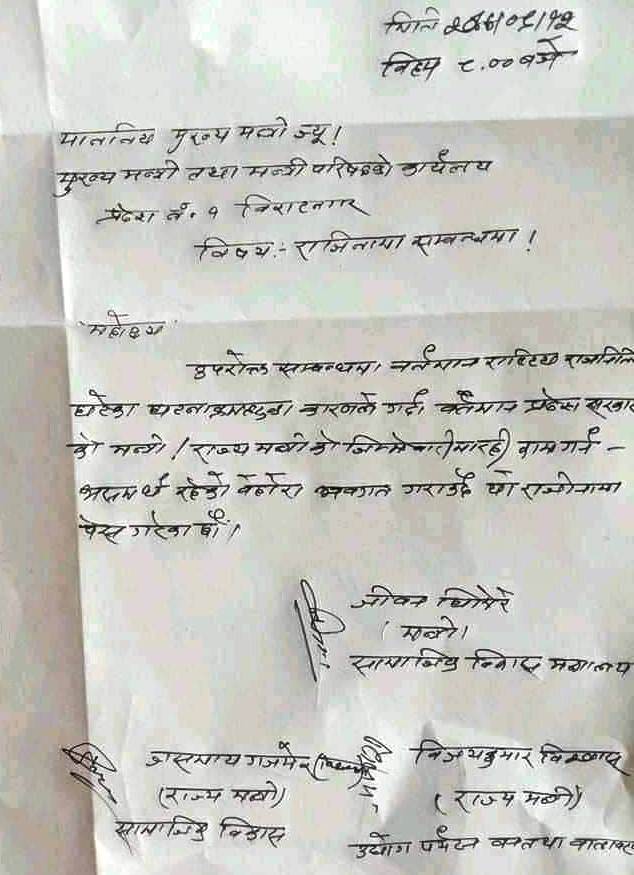 मिति
विहय ८.०० बजे
माननिय मुख्य मन्त्री ज्यू!
मुख्य मन्त्री तथा मन्त्री परिषदको कार्यलय
प्रदेश नं. १ विराटनगर
विषय:- राजिनामा सम्वन्धमा!
महोदय
उपरोक्त सम्वन्धमा वर्तमान राष्ट्रिय राजनिति
घटेका कारणले गर्दा वर्तमान प्रदेस सरकार
को मन्त्री / राज्य मन्त्री को जिम्मेवारीमा रही काम गर्न -
असमर्थ रहेको वेहोरा अवगत गराउदै यो राजीनामा
पेस गरेका छौं।
जीवन घिमिरे
(मन्त्री)
सामाजिक विकास मन्त्रालय
जसमाय गजमेर विजयकुमार विश्वास
(राज्य मन्त्री) (राज्य मन्त्री)
सामाजिक विकास
उद्योग पर्यटन वन तथा वातावर